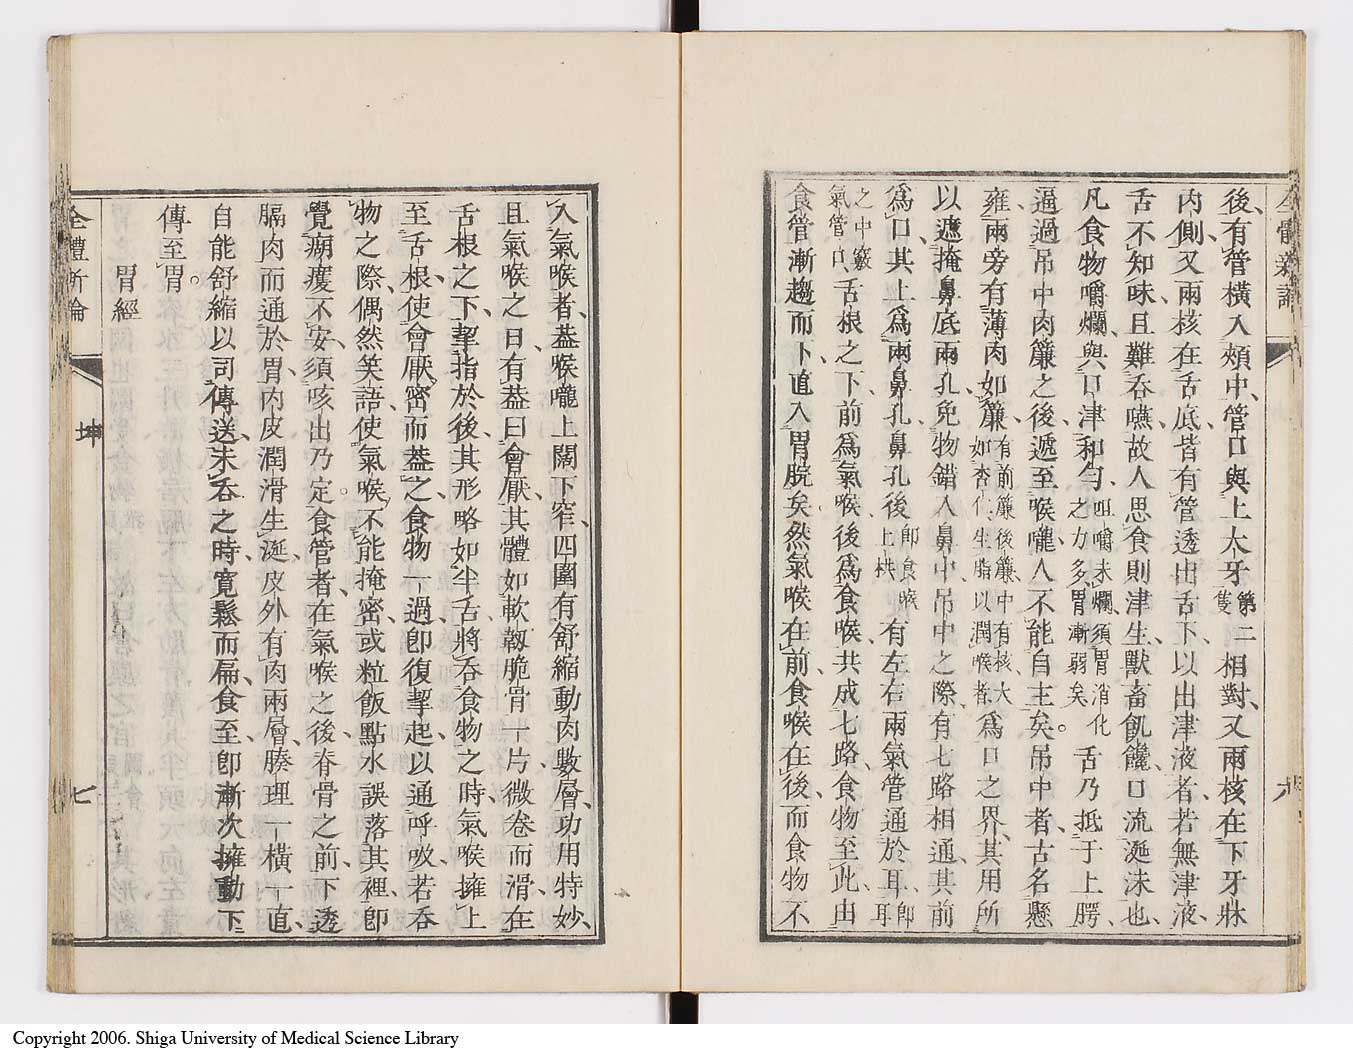 全體新論
後有管橫入頰中管口與上大牙第二隻相對又兩核在下牙牀
內側又兩核在舌底皆有管透出舌下以出津液者若無津液
舌不知味且難吞嚥故人思食則津生獸畜飢饞口流涎沫也
凡食物嚼爛與口津和勻咀嚼未爛須胃消化之力多胃漸弱矣舌乃抵于上腭
逼過吊中肉簾之後遞至喉嚨人不能自主矣。吊中者古名懸
雍兩旁有薄肉如簾有前簾後簾中有核大如杏仁生脂以潤喉者為口之界其用所
以遮掩鼻底兩孔免物錯入鼻中吊中之際有七路相通其前
為口其上為兩鼻孔鼻孔後即食喉上栱有左右兩氣管通於耳即耳
之中竅氣管口舌根之下前為氣喉後為食喉共成七路食物至此由
食管漸趨而下直入胃脘矣然氣喉在前食喉在後而食物不
六
入氣喉者葢喉嚨上闊下窄四圍有舒縮動肉數層功用特妙
且氣喉之口有葢曰會厭其體如軟韌脆骨一片微卷而滑在
舌根之下挈指於後其形略如半舌將吞食物之時氣喉擁上
至舌根使會厭密而葢之食物一過即復挈起以通呼吸若吞
物之際偶然笑語使氣喉不能掩密或粒飯點水誤落其裡即
覺癎癢不安須咳出乃定。食管者在氣喉之後脊骨之前下透
膈肉而通於胃內皮潤滑生涎皮外有肉兩層腠理一橫一直
自能舒縮以司傳送未吞之時寬鬆而扁食至即漸次擁動下
傳至胃。
胃經
全體新論
坤
七
Copyright 2006. Shiga University of Medical Science Library